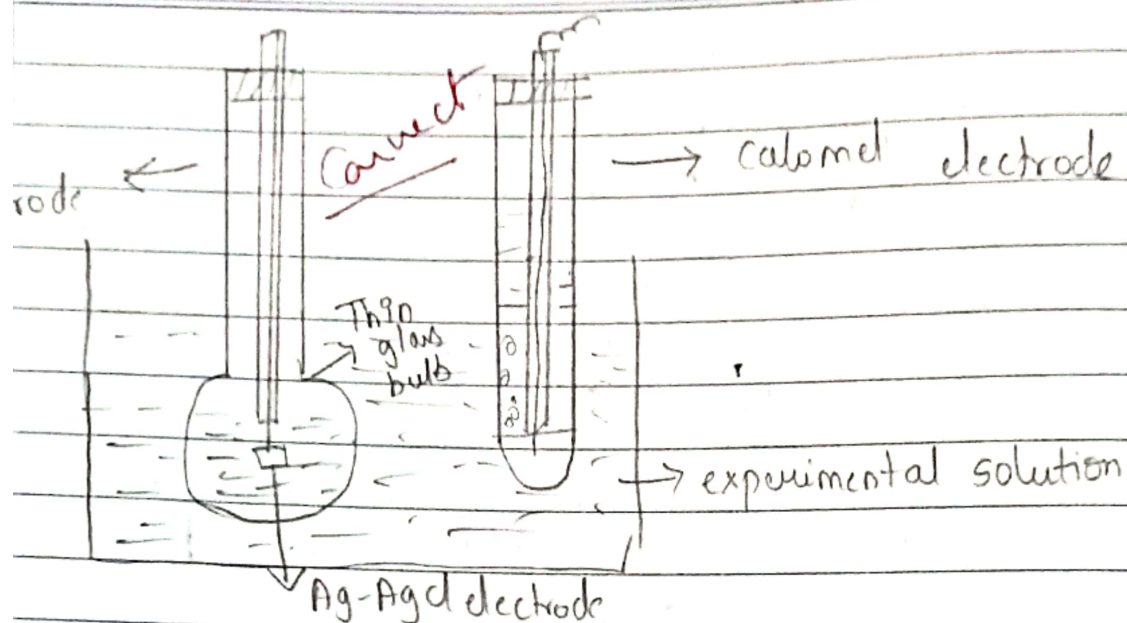 Correct
calomel electrode
rode
Thin
glass
bulb
experimental solution
Ag-AgCl electrode